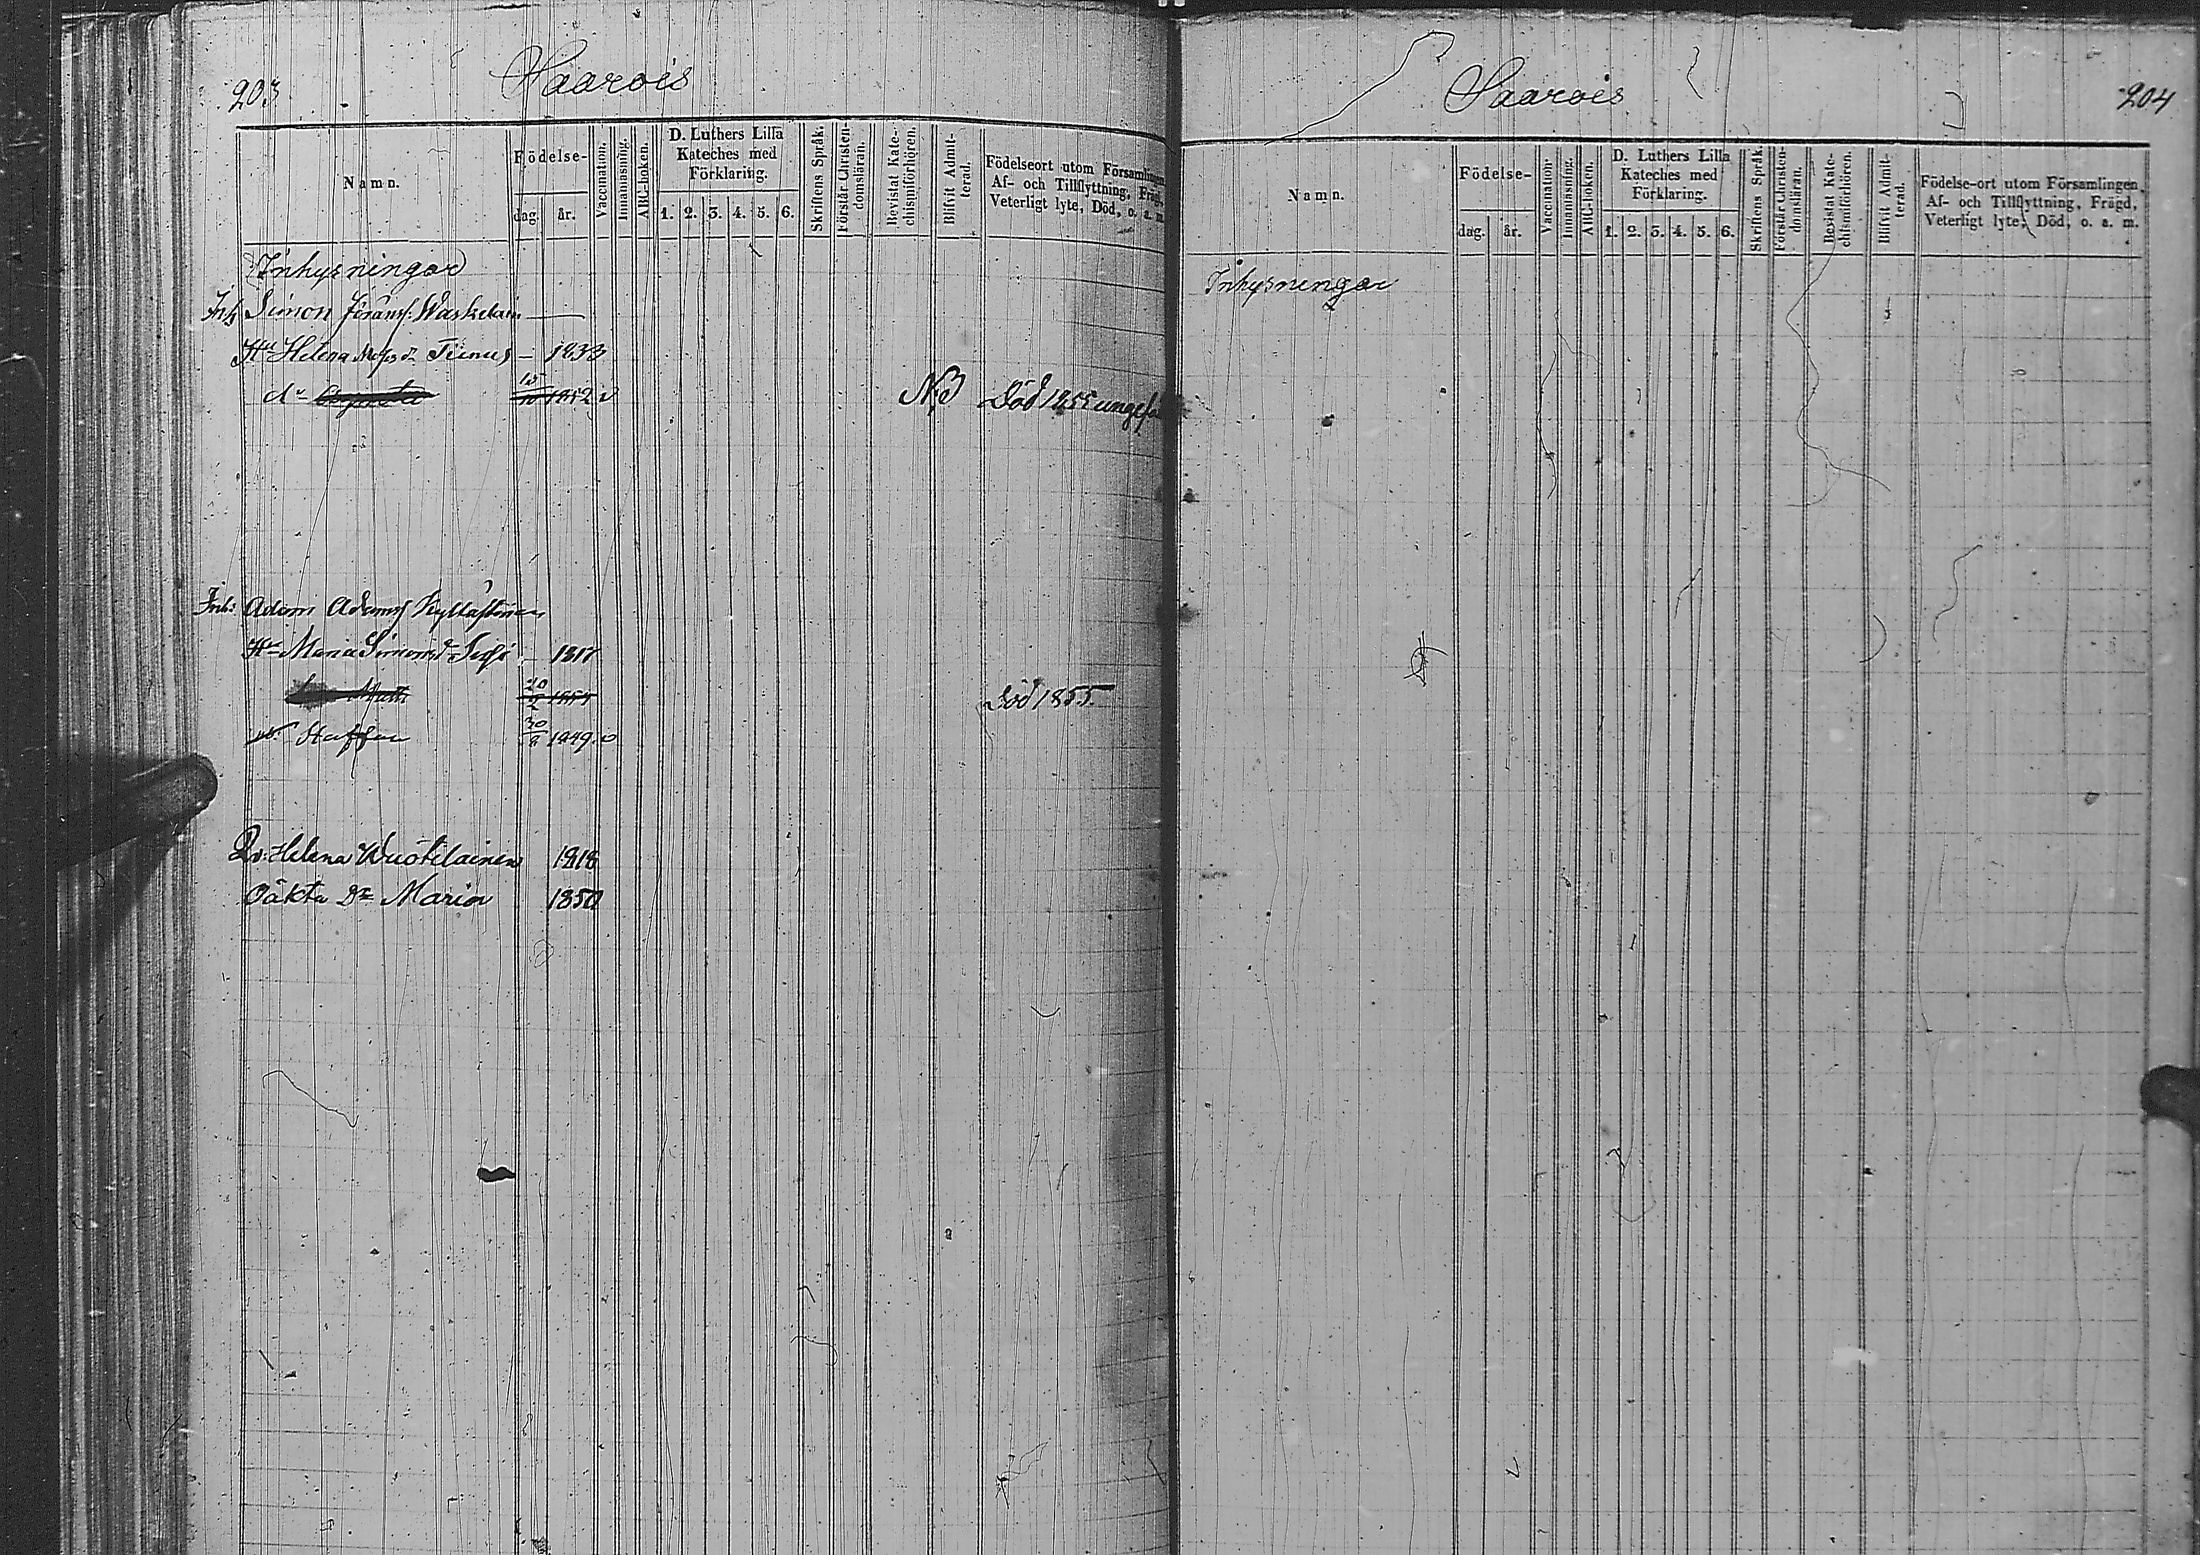 203 Saarois
Namn. Födelse- dag. år. Vaccination. Innanläsning. ABC-boken. D. Luthers Lilla Kateches med Förklaring. 1. 2. 3. 4. 5. 6. Skriftens Språk. Förstår Christendomsläran. Bevistat Katechismiförhören. Blifvit Admitterad. Födelseort utom Församlingen, Af- och Tillflyttning, Frägd, Veterligt lyte, Död, o. a. m.
Inhysningar
Inh Simon WasKelain
Hu Helena Tiinus — 1833
dr 1852 v NB Död 1855
Inh: Adam Adamsf
Hu Maria Simonsd — 1817
20 Död 1855.
Staffan 30 1849. v
Helena Wuotilainen 1818
Oäkta Dr Maria 1850
Saarois 204
Namn. Födelse- dag. år. Vaccination. Innanläsning. ABC-boken. D. Luthers Lilla Kateches med Förklaring. 1. 2. 3. 4. 5. 6. Skriftens Språk. Förstår Christendomsläran. Bevistat Katechismiförhören. Blifvit Admitterad. Födelse-ort utom Församlingen, Af- och Tillflyttning, Frägd, Veterligt lyte, Död, o. a. m.
Inhysningar